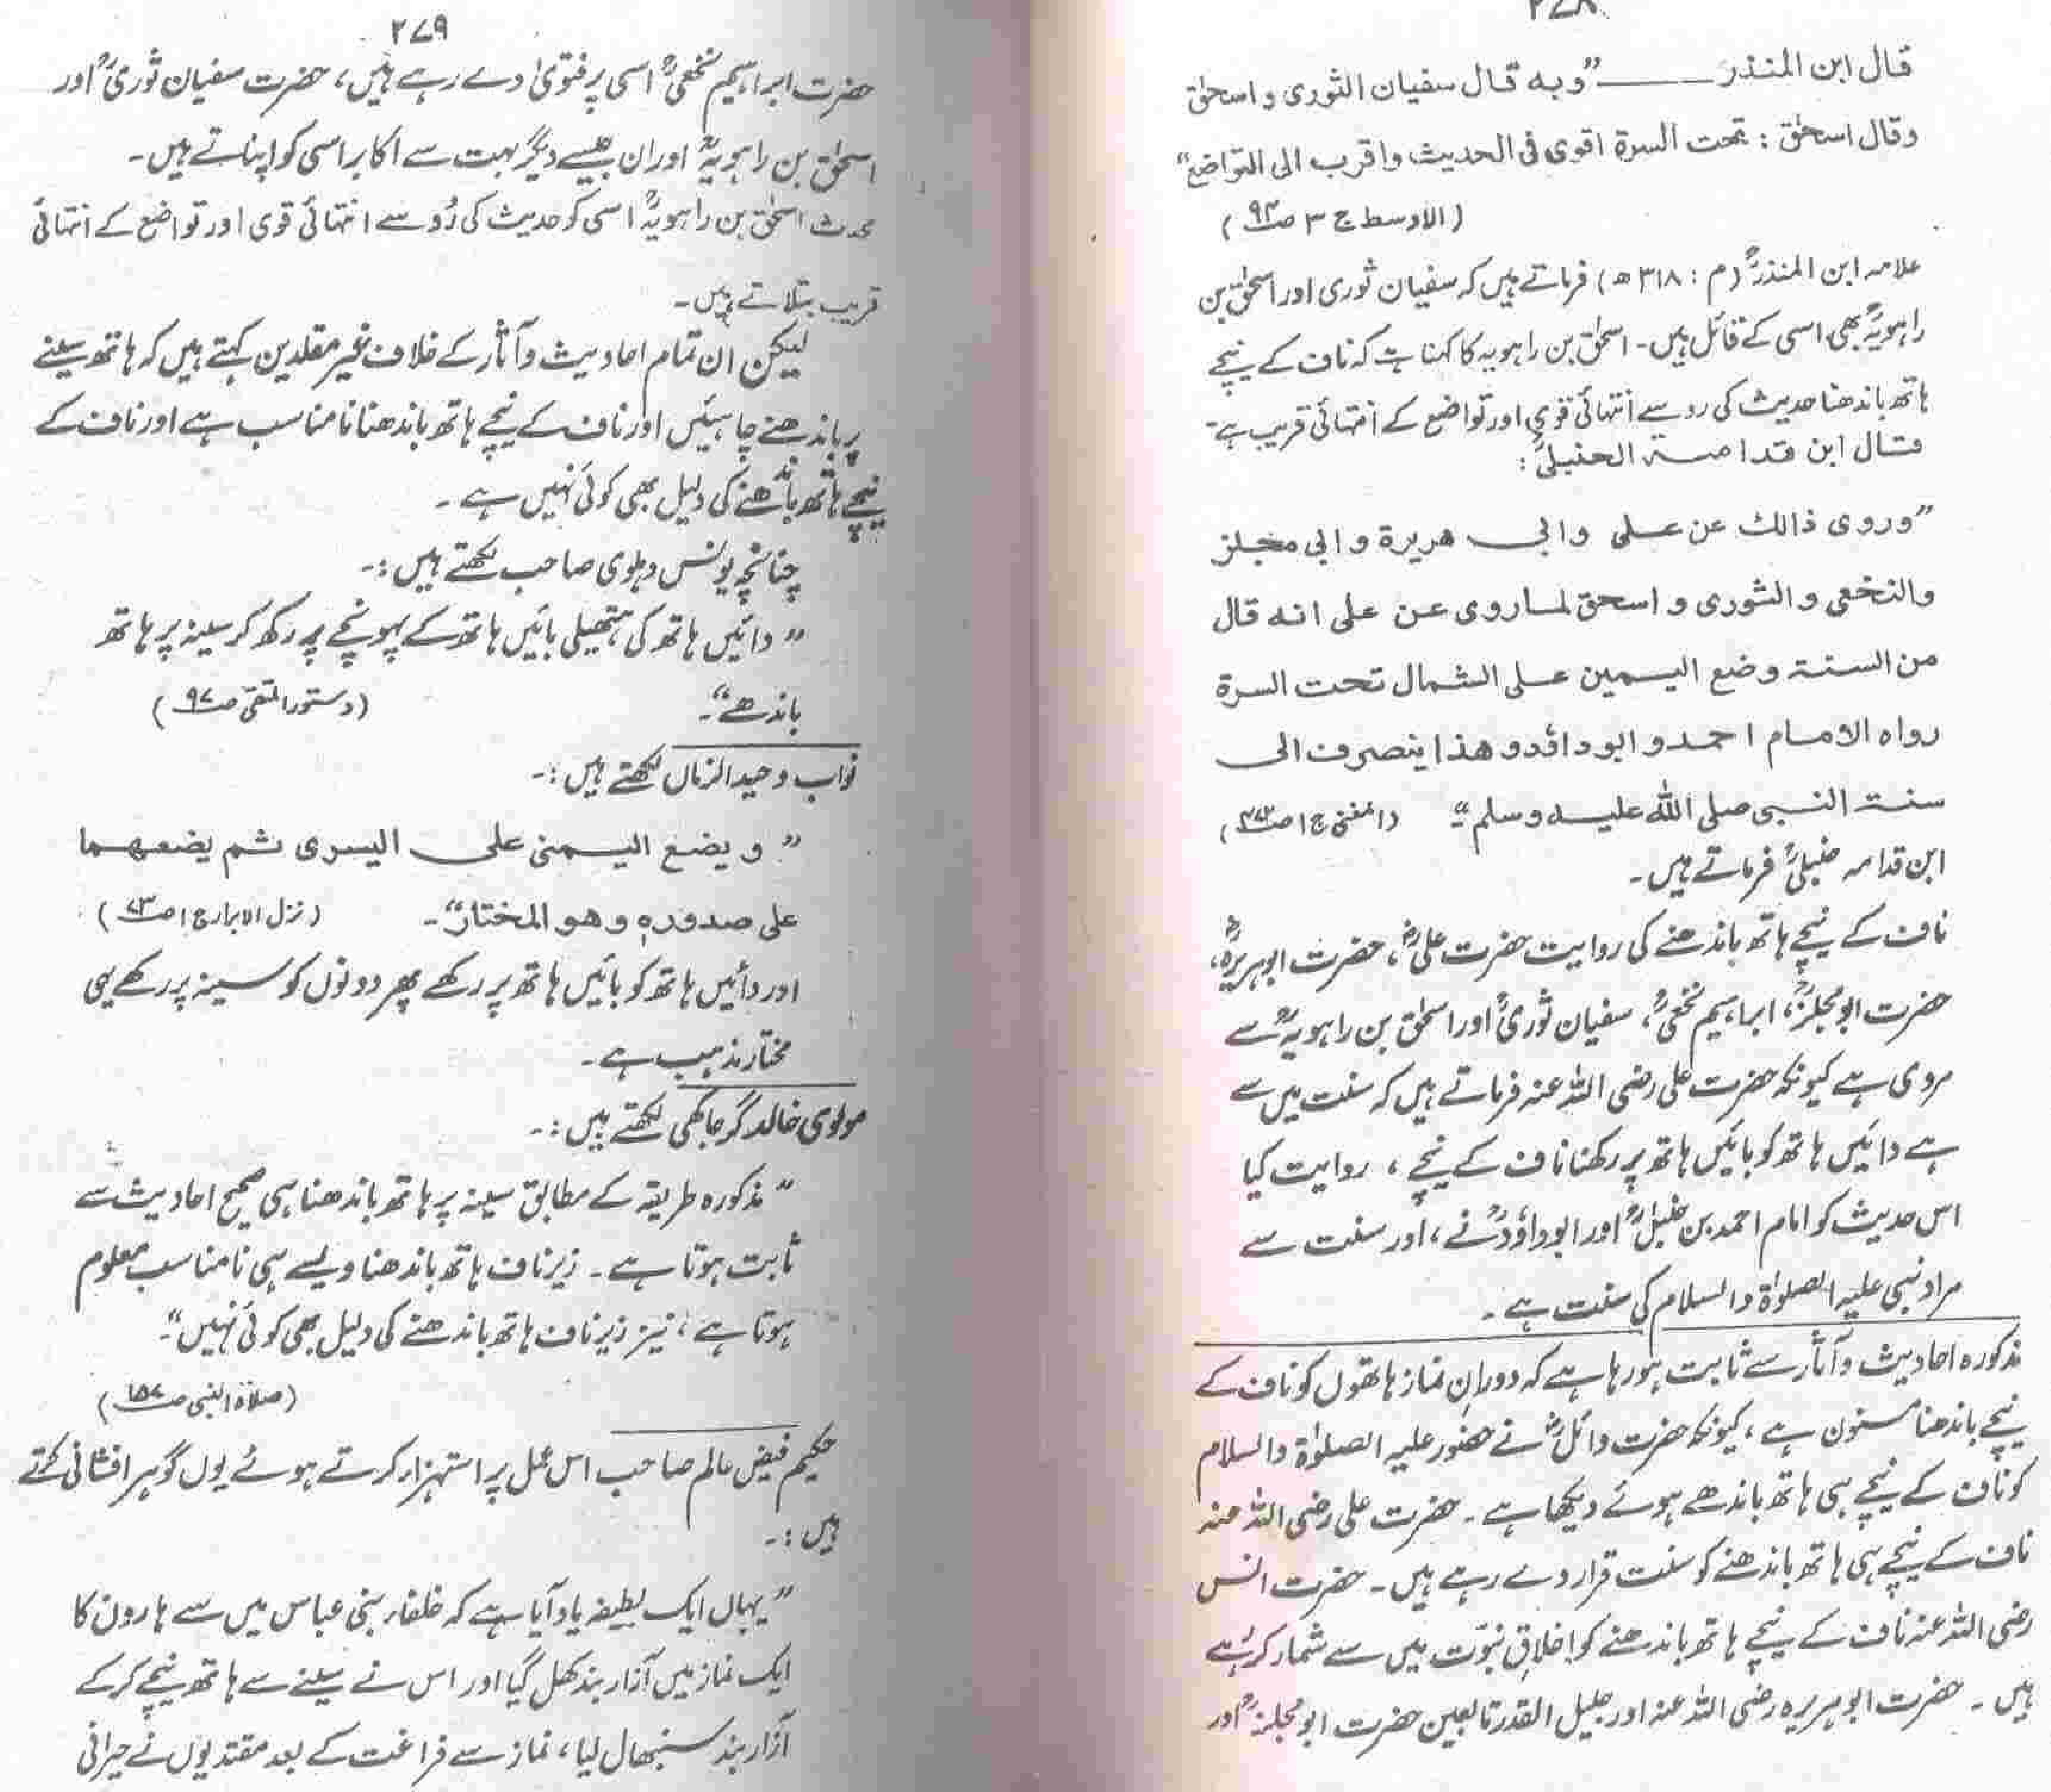 ۲۷۸
قال ابن المنذر ــــــــ "وبه قال سفیان الثوری و اسحٰق
وقال اسحٰق : تحت السرة اقوی فی الحدیث واقرب الی التواضع"
(الاوسط ج ۳ ص۹۴)
علامہ ابن المنذرؒ (م : ۳۱۸ ھ) فرماتے ہیں کہ سفیان ثوری اور اسحٰق بن
راہویہؒ بھی اسی کے قائل ہیں۔ اسحٰق بن راہویہ کا کہنا ہے کہ ناف کے نیچے
ہاتھ باندھنا حدیث کی رو سے انتہائی قوی اور تواضع کے انتہائی قریب ہے۔
قال ابن قدامة الحنبلیؒ :
"وروی ذالك عن علی وابی هریرة وابی مجلز
والنخعی والثوری و اسحق لماروی عن علی انه قال
من السنة وضع الیمین علی الشمال تحت السرة
رواه الامام احمد و ابو داؤد و هذا ینصرف الی
سنة النبی صلی الله علیه وسلم" (المغنی ج ۱ ص۴۷۳)
ابن قدامہ حنبلیؒ فرماتے ہیں۔
ناف کے نیچے ہاتھ باندھنے کی روایت حضرت علیؓ، حضرت ابو ہریرہؓ،
حضرت ابو مجلزؒ، ابراہیم نخعیؒ، سفیان ثوریؒ اور اسحٰق بن راہویہؒ سے
مروی ہے کیونکہ حضرت علی رضی اللہ عنہ فرماتے ہیں کہ سنت میں سے
ہے دائیں ہاتھ کو بائیں ہاتھ پر رکھنا ناف کے نیچے ، روایت کیا
اس حدیث کو امام احمد بن حنبلؒ اور ابوداؤدؒ نے ، اور سنت سے
مراد نبی علیہ الصلوٰة والسلام کی سنت ہے ۔
مذکورہ احادیث و آثار سے ثابت ہو رہا ہے کہ دورانِ نماز ہاتھوں کو ناف کے
نیچے باندھنا مسنون ہے ، کیونکہ حضرت وائلؓ نے حضور علیہ الصلوٰة والسلام
کو ناف کے نیچے ہی ہاتھ باندھے ہوئے دیکھا ہے ۔ حضرت علی رضی اللہ عنہ
ناف کے نیچے ہی ہاتھ باندھنے کو سنت قرار دے رہے ہیں ۔ حضرت انس
رضی اللہ عنہ ناف کے نیچے ہاتھ باندھنے کو اخلاقِ نبوّت میں سے شمار کر رہے
ہیں ۔ حضرت ابو ہریرہ رضی اللہ عنہ اور جلیل القدر تابعین حضرت ابو مجلزؒ اور
۲۷۹
حضرت ابراہیم نخعیؒ اسی پر فتویٰ دے رہے ہیں ، حضرت سفیان ثوریؒ اور
اسحٰق بن راہویہؒ اور ان جیسے دیگر بہت سے اکابر اسی کو اپناتے ہیں۔
محدث اسحٰق بن راہویہؒ اسی کو حدیث کی رُو سے انتہائی قوی اور تواضع کے انتہائی
قریب بتلاتے ہیں۔
لیکن ان تمام احادیث و آثار کے خلاف غیر مقلدین کہتے ہیں کہ ہاتھ سینے
پر باندھنے چاہئیں اور ناف کے نیچے ہاتھ باندھنا نامناسب ہے اور ناف کے
نیچے ہاتھ باندھنے کی دلیل بھی کوئی نہیں ہے ۔
چنانچہ یونس دہلوی صاحب لکھتے ہیں :۔
" دائیں ہاتھ کی ہتھیلی بائیں ہاتھ کے پہونچے پر رکھ کر سینہ پر ہاتھ
باندھے"۔ (دستور المتقی ص۹۷)
نواب وحید الزماں لکھتے ہیں :۔
" و یضع الیمنی علی الیسری ثم یضعهما
علی صدوره و هو المختار"۔ (نزل الابرار ج۱ ص۷۳)
اور دائیں ہاتھ کو بائیں ہاتھ پر رکھے پھر دونوں کو سینہ پر رکھے یہی
مختار مذہب ہے ۔
مولوی خالد گرجاکھی لکھتے ہیں :۔
" مذکورہ طریقہ کے مطابق سینہ پر ہاتھ باندھنا ہی صحیح احادیث سے
ثابت ہوتا ہے ۔ زیر ناف ہاتھ باندھنا ویسے ہی نامناسب معلوم
ہوتا ہے ، نیز زیر ناف ہاتھ باندھنے کی دلیل بھی کوئی نہیں"۔
(صلاة النبی ص۱۵۷)
حکیم فیض عالم صاحب اس عمل پر استہزار کرتے ہوئے یوں گوہر افشانی کرتے
ہیں :۔
" یہاں ایک لطیفہ یاد آیا ہے کہ خلفاء بنی عباس میں سے ہارون کا
ایک نماز میں آزار بند کھل گیا اور اس نے سینے سے ہاتھ نیچے کر کے
آزار بند سنبھال لیا ، نماز سے فراغت کے بعد مقتدیوں نے حیرانی